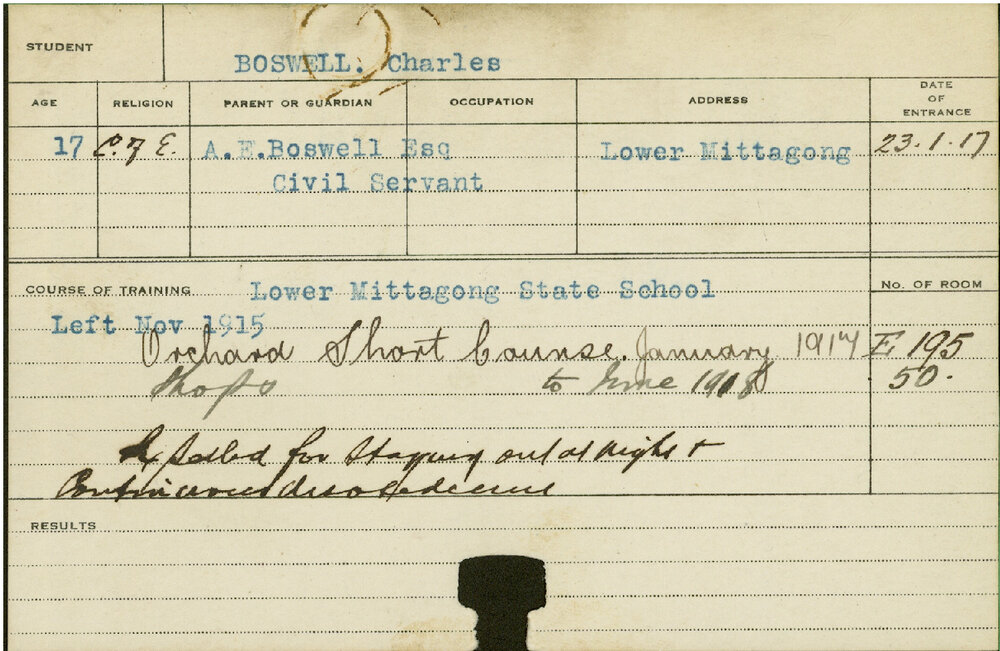 STUDENT
BOSWELL. Charles
AGE RELIGION PARENT OR GUARDIAN OCCUPATION ADDRESS DATE OF ENTRANCE
17 C. of E. A.E.Boswell Esq Lower Mittagong 23.1.17
Civil Servant
COURSE OF TRAINING Lower Mittagong State School No. OF ROOM
Left Nov 1915
Orchard Short Course. January 1917 E 195
to June 1918 50.
Expelled for Staying out at Night +
Continuous disobedience
RESULTS